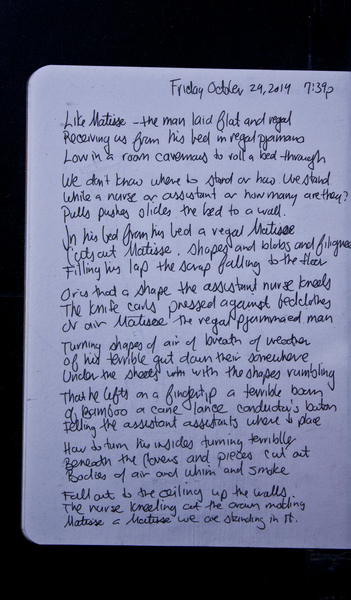 Friday October 24, 2014 7:39p
Like Matisse – the man laid flat and regal
Receiving us from his bed in regal pyjamas
Low in a room cavernous to roll a bed through
We don't know where to stand or how we stand
While a nurse or assistant or how many are they?
Pulls pushes slides the bed to a wall.
In his bed from his bed a regal Matisse
Cuts out Matisse. shapes and blobs and filigree
Filling his lap the scrap falling to the floor
Or is that a shape the assistant nurse kneels
The knife curls pressed against bedclothes
Or air Matisse the regal pyjammaed man
Turning shapes of air of breath of weather
Of his terrible gut down there somewhere
Under the sheets with the shapes rumbling
That he lifts on a fingertip a terrible
Of Bamboo a cane lance conductor's baton
Telling the assistant assistants where to place
How to turn his insides turning terribly
Beneath the covers and pieces cut out
Bodies of air and whim and smoke
Fall out to the ceiling up the walls.
The nurse kneeling at the
Matisse a Matisse we are standing in it.